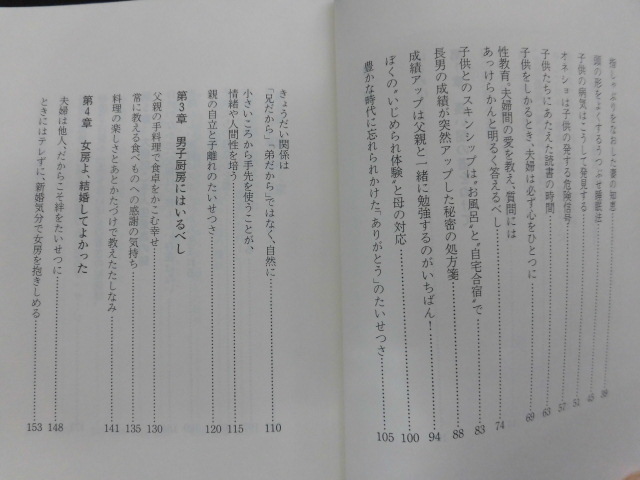 指しゃぶりをなおした妻の知恵……38
頭の形をよくするうつぶせ睡眠法……45
子供の病気はこうして発見する……51
オネショは子供の発する危険信号……57
子供たちにあたえた読書の時間……63
子供をしかるとき、夫婦は必ず心をひとつに……69
性教育・夫婦間の愛を教え、質問には
あっけらかんと明るく答えるべし……74
子供とのスキンシップは、“お風呂”と“自宅合宿”で……83
長男の成績が突然アップした秘密の処方箋……88
成績アップは父親と一緒に勉強するのがいちばん!……94
ぼくの“いじめられ体験”と母の対応……100
豊かな時代に忘れられかけた「ありがとう」のたいせつさ……105
きょうだい関係は
「兄だから」「弟だから」ではなく、自然に……110
小さいころから手先を使うことが、
情緒や人間性を培う……115
親の自立と子離れのたいせつさ……120
第3章 男子厨房にはいるべし
父親の手料理で食卓をかこむ幸せ……130
常に教える食べものへの感謝の気持ち……135
料理の楽しさとあとかたづけで教えたたしなみ……141
第4章 女房よ、結婚してよかった
夫婦は他人、だからこそ絆をたいせつに……148
ときにはテレずに、新婚気分で女房を抱きしめる……153